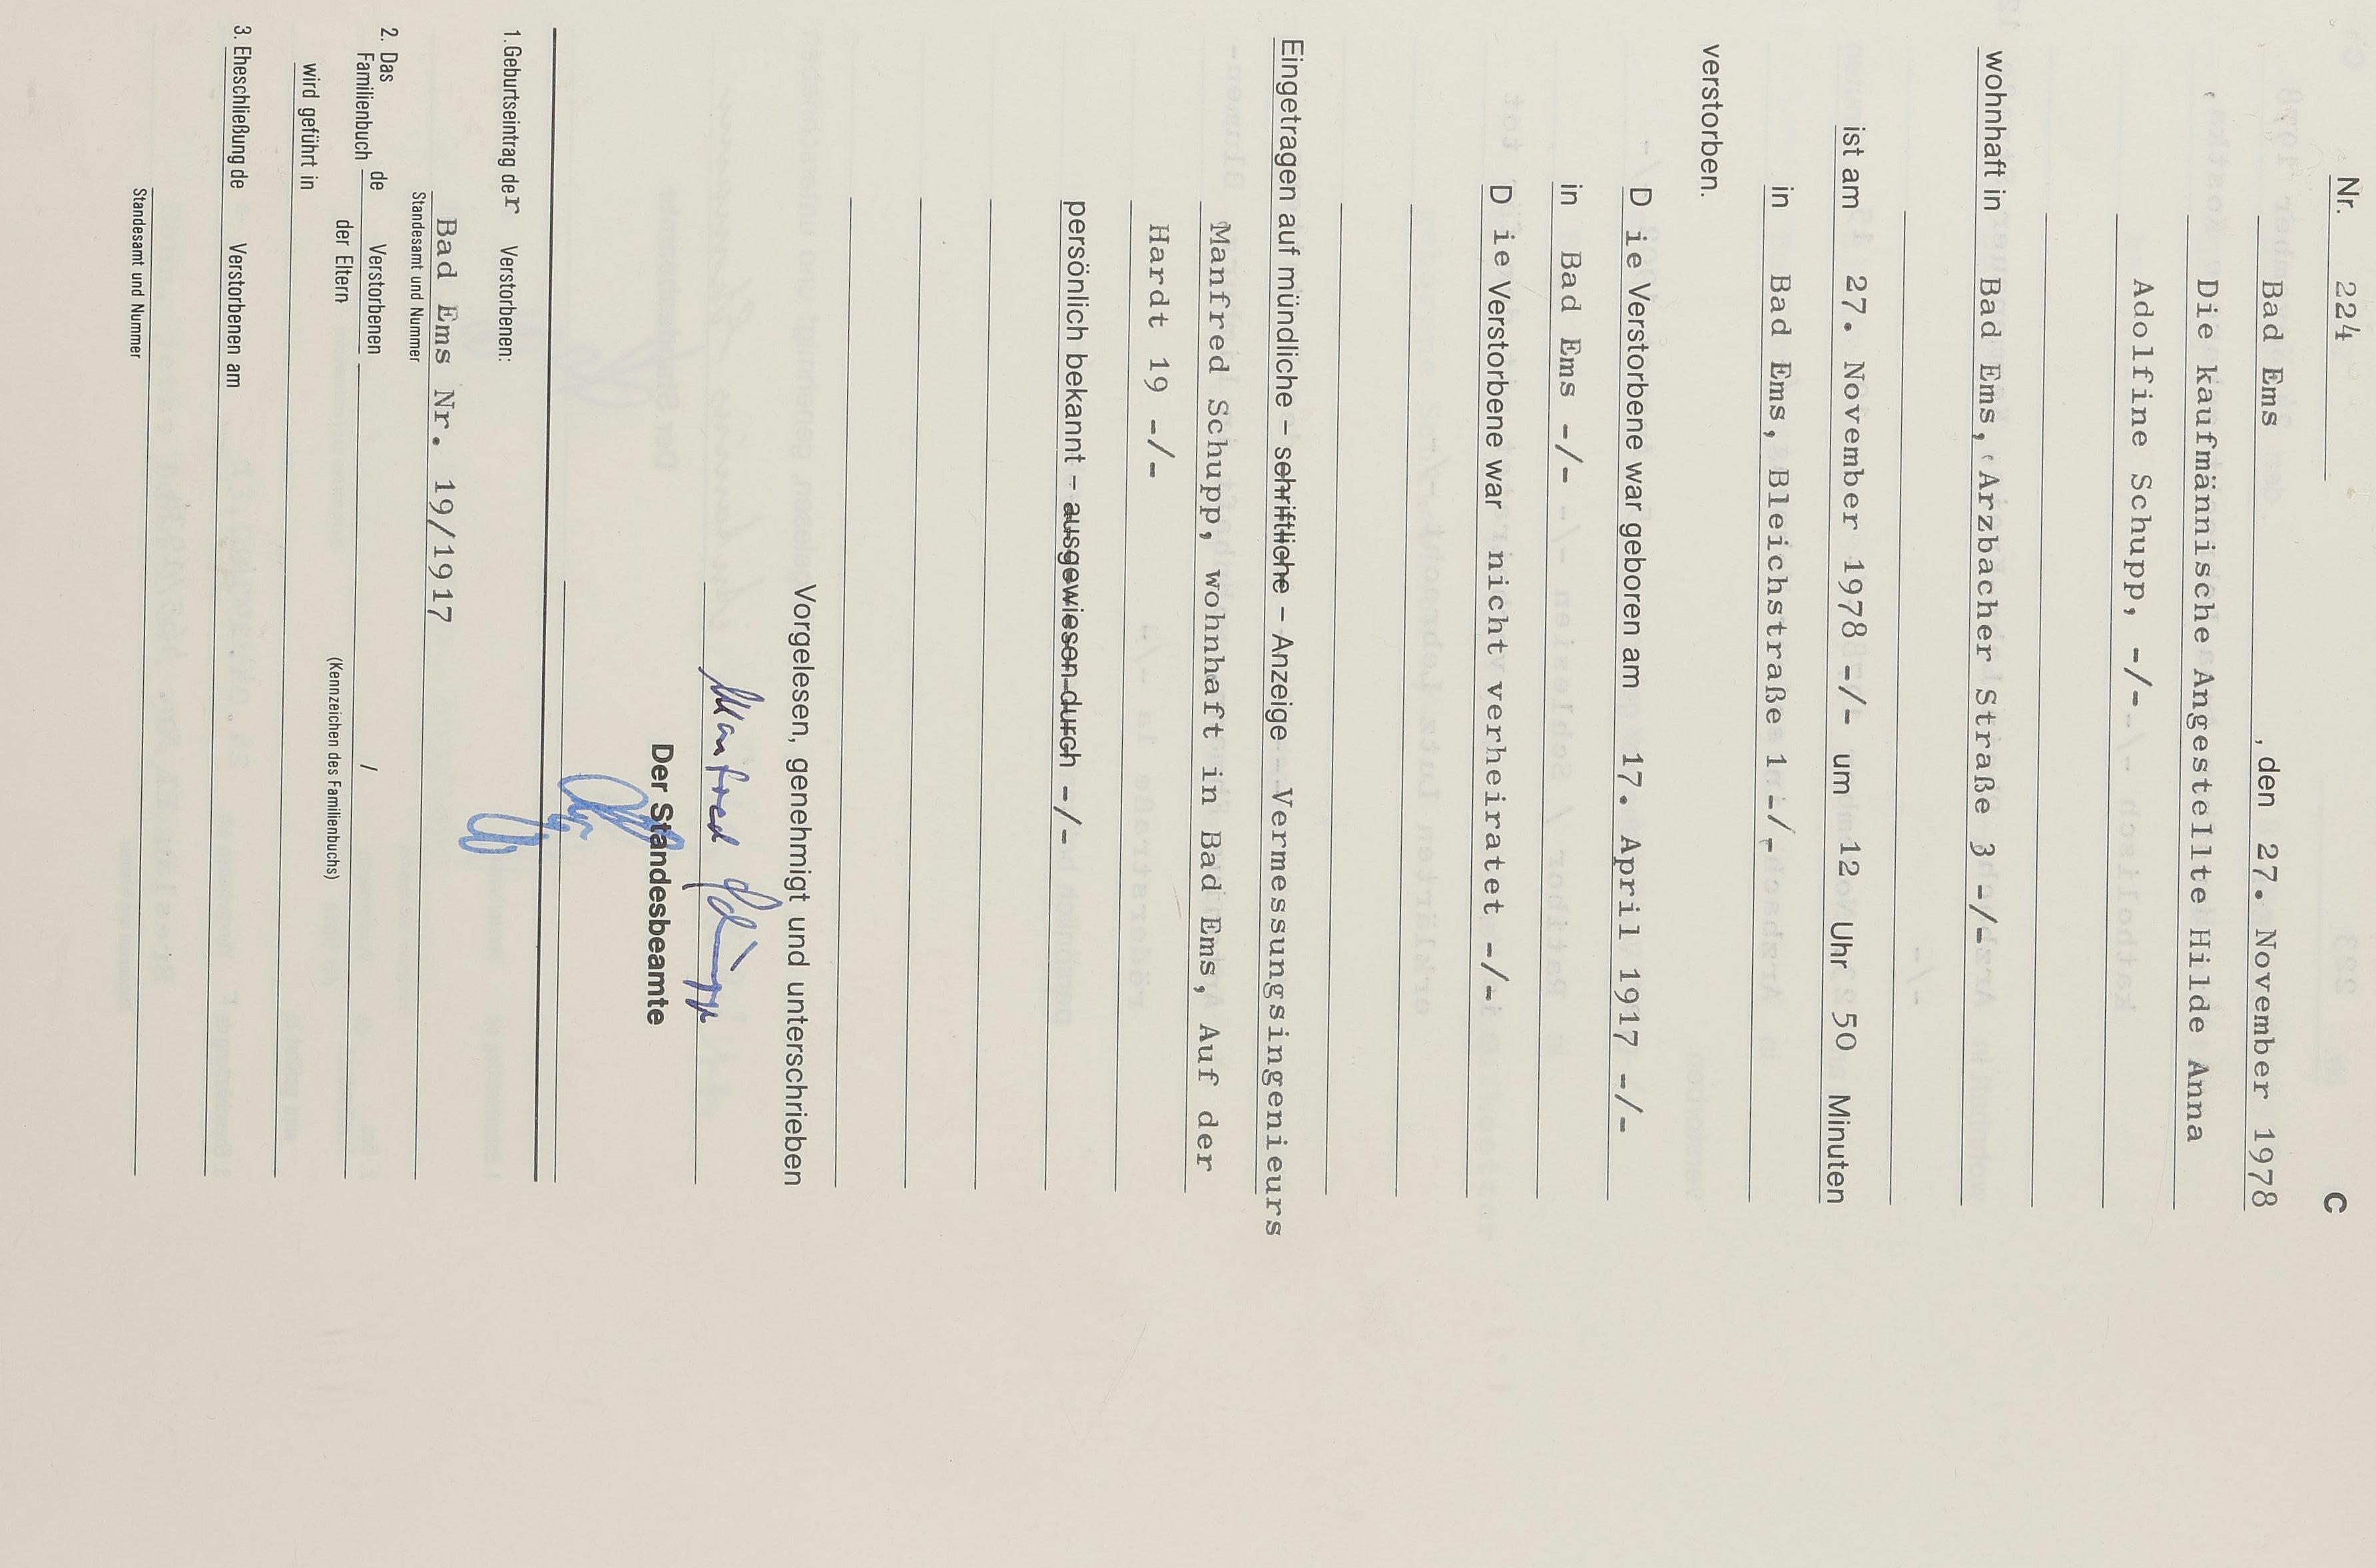 Nr. 224 C
Bad Ems, den 27. November 1978
Die kaufmännische Angestellte Hilde Anna
Adolfine Schupp, -/-
wohnhaft in Bad Ems, Arzbacher Straße 3 -/-
ist am 27. November 1978 -/- um 12 Uhr 50 Minuten
in Bad Ems, Bleichstraße 1 -/-
verstorben.
D ie Verstorbene war geboren am 17. April 1917 -/-
in Bad Ems -/-
D ie Verstorbene war nicht verheiratet -/-
Eingetragen auf mündliche – schriftliche – Anzeige des Vermessungsingenieurs
Manfred Schupp, wohnhaft in Bad Ems, Auf der
Hardt 19 -/-
persönlich bekannt – ausgewiesen durch -/-
Vorgelesen, genehmigt und unterschrieben
Manfred Schupp
Der Standesbeamte
1. Geburtseintrag der Verstorbenen:
Bad Ems Nr. 19/1917
Standesamt und Nummer
2. Das Familienbuch de Verstorbenen /
der Eltern
(Kennzeichen des Familienbuchs)
wird geführt in
3. Eheschließung de Verstorbenen am
Standesamt und Nummer